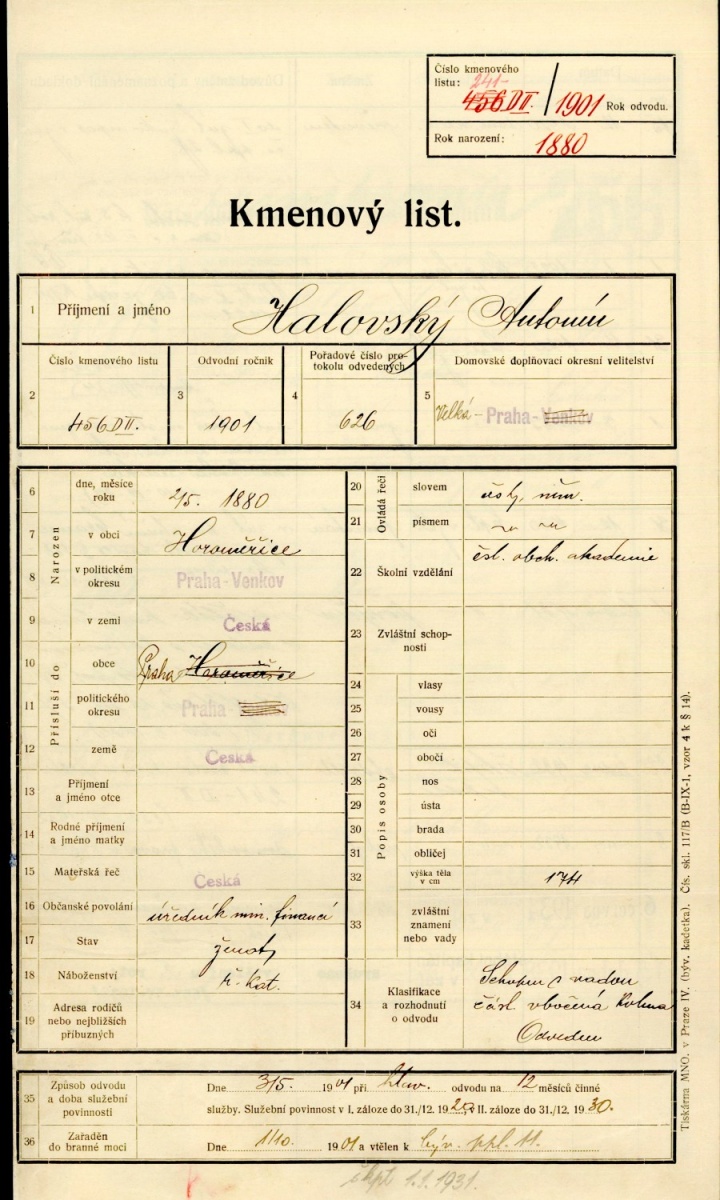 Číslo kmenového
listu: 241
456 DII. / 1901 Rok odvodu.
Rok narození: 1880
Kmenový list.
1 Příjmení a jméno Halovský Antonín
Číslo kmenového listu Odvodní ročník Pořadové číslo pro-
tokolu odvedených Domovské doplňovací okresní velitelství
2 456 DII. 3 1901 4 626 5 Velká - Praha-Venkov
Narozen
6 dne, měsíce
roku 2/5. 1880
7 v obci Horoměřice
8 v politickém
okresu Praha-Venkov
9 v zemi Česká
Přísluší do
10 obce Praha Horoměřice
11 politického
okresu Praha-
12 země Česká
13 Příjmení
a jméno otce
14 Rodné příjmení
a jméno matky
15 Mateřská řeč Česká
16 Občanské povolání úředník min. financí
17 Stav ženatý
18 Náboženství ř. kat.
19 Adresa rodičů
nebo nejbližších
příbuzných
Ovládá řeči
20 slovem čsky, něm.
21 písmem
22 Školní vzdělání čsl. obch. akademie
23 Zvláštní schop-
nosti
Popis osoby
24 vlasy
25 vousy
26 oči
27 obočí
28 nos
29 ústa
30 brada
31 obličej
32 výška těla
v cm 174
33 zvláštní
znamení
nebo vady
34 Klasifikace
a rozhodnutí
o odvodu Schopen s vadou
část. vbočená kolena
Odveden
35 Způsob odvodu
a doba služební
povinnosti Dne 3/5. 1901 při hlav. odvodu na 12 měsíců činné
služby. Služební povinnost v I. záloze do 31./12. 1920 II. záloze do 31./12. 1930.
36 Zařaděn
do branné moci Dne 1/10. 1901 a vtělen k býv. ppl. 11.
1.1.1931.
Tiskárna MNO. v Praze IV. (býv. kadetka). Čís. skl. 117/B (B-IX-1, vzor 4 k § 14).